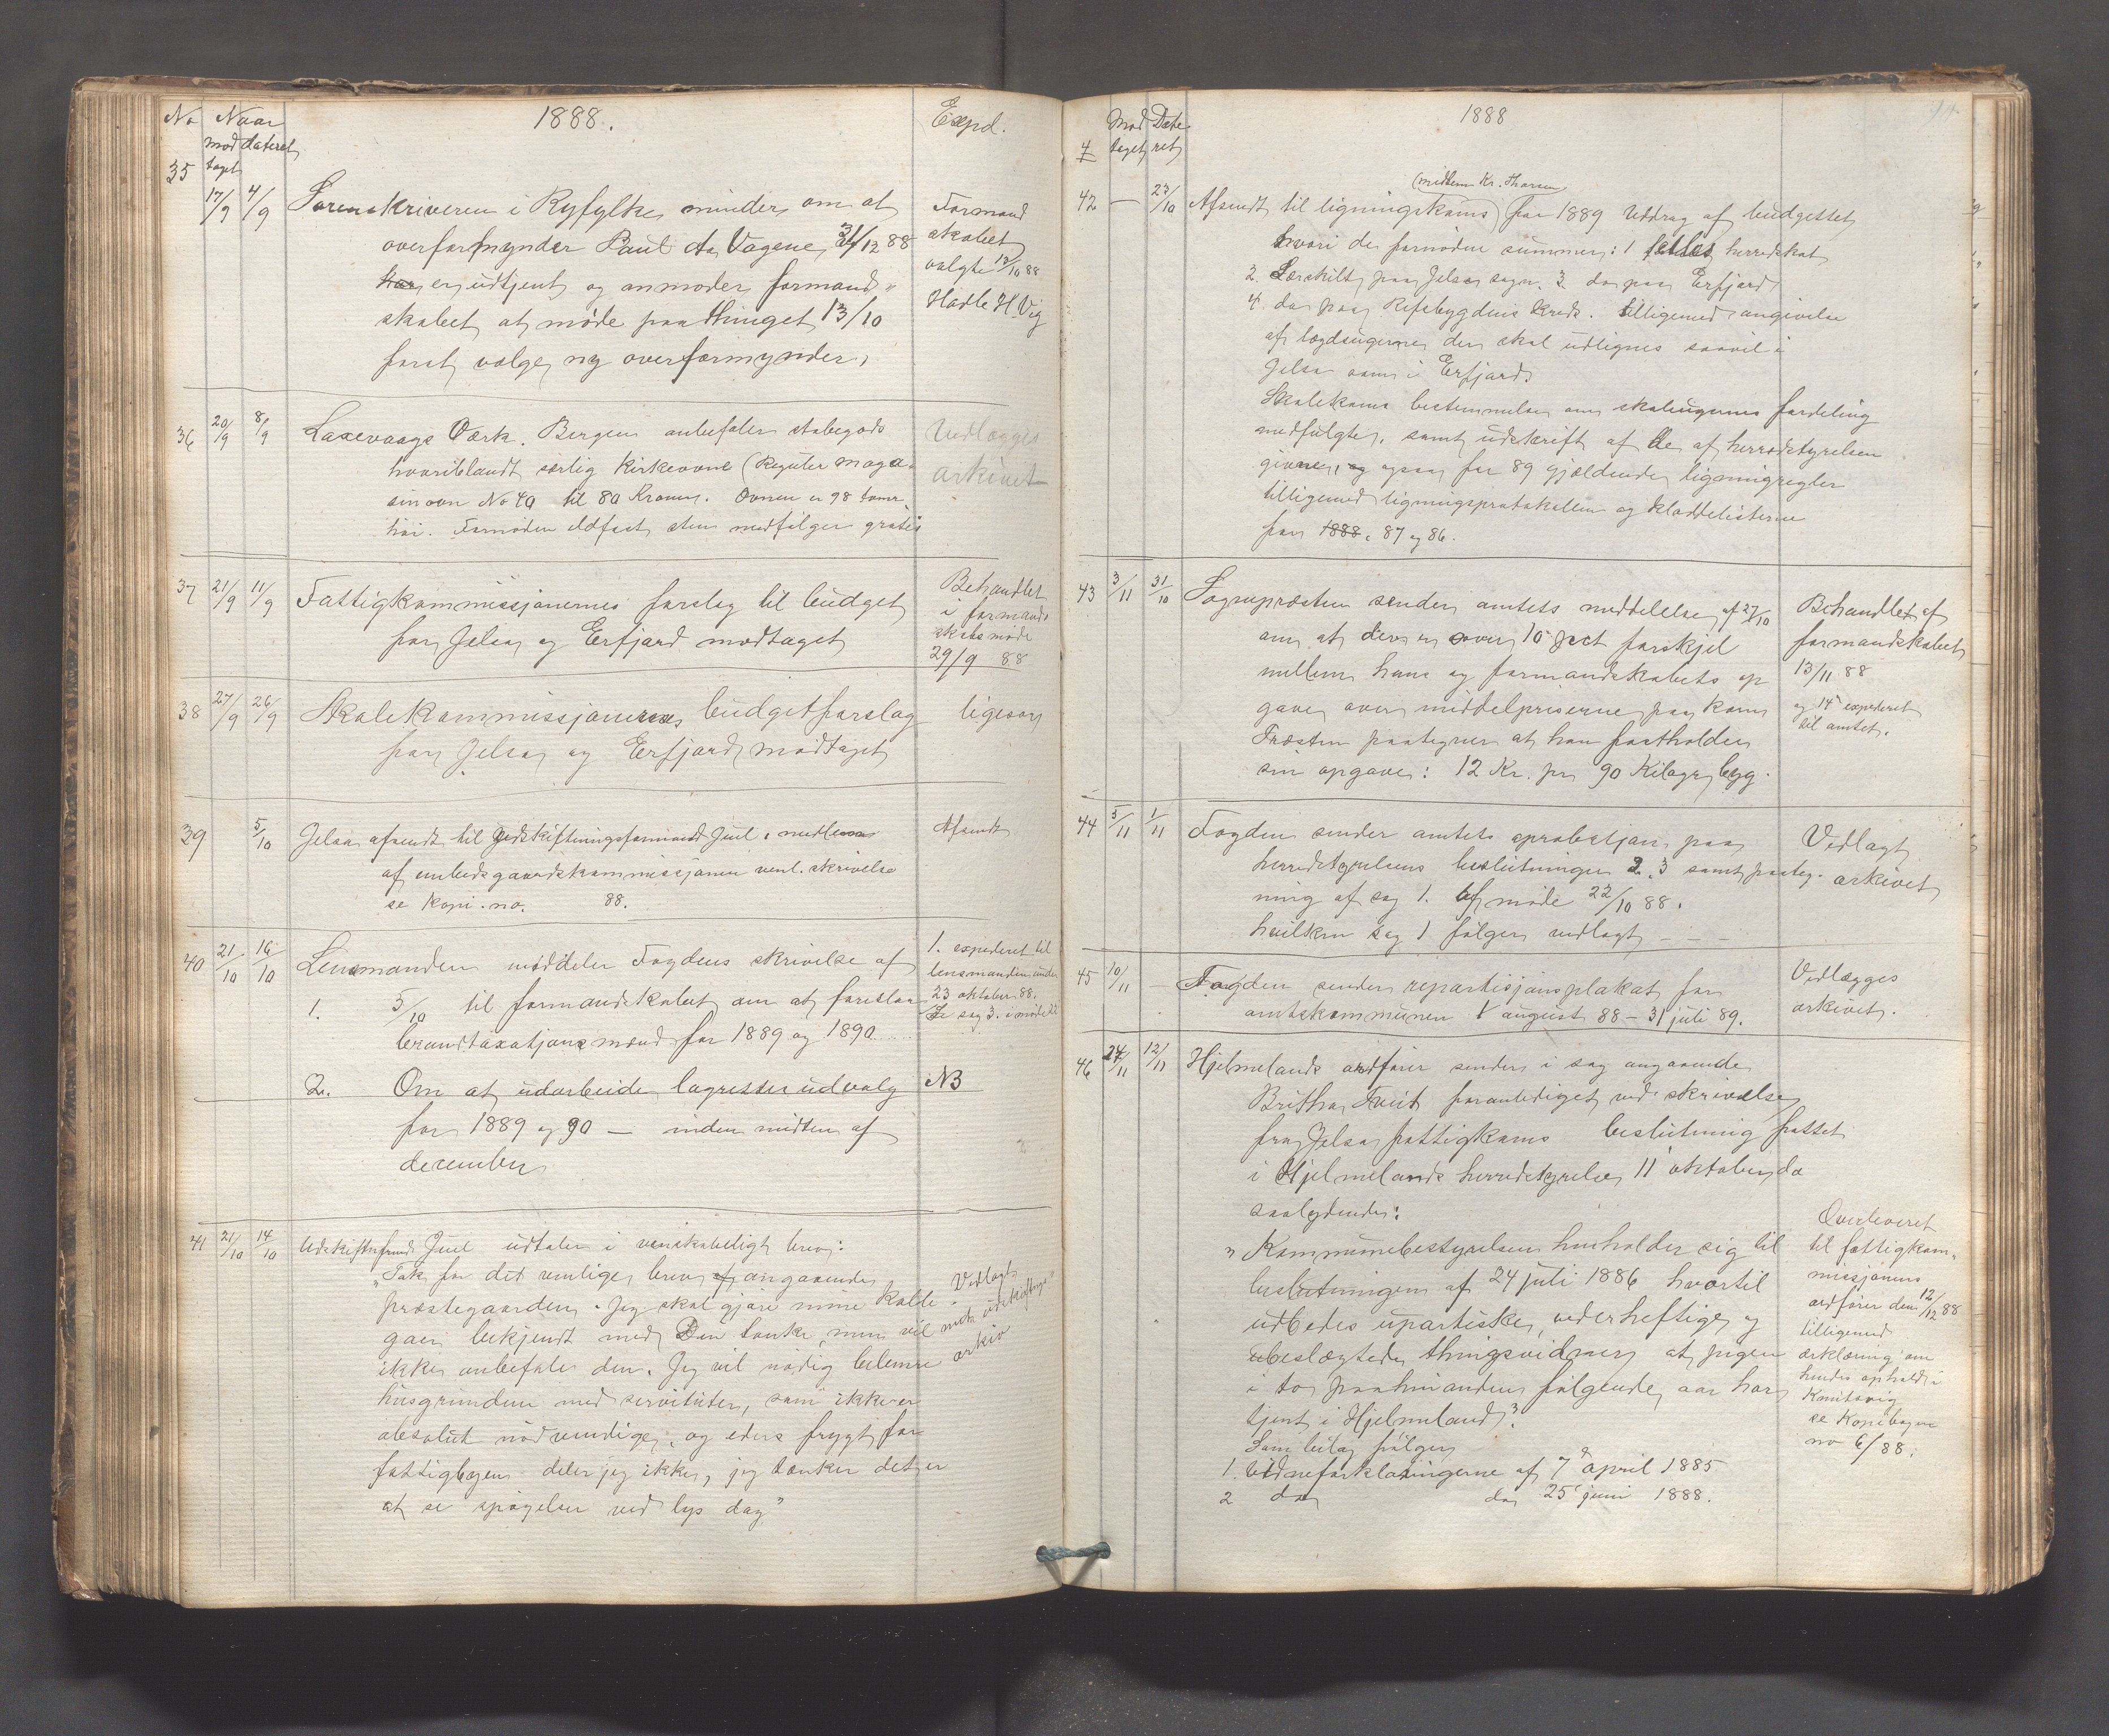 No Naar 1888. Expd.
mod dateret
taget
35 17/9 4/9 Sorenskriveren i Ryfylke minder om at
overformynder Paul A. Vagene, 31/12 88
har er udtjent og anmoder formand"
skabet at møde paa thinget 13/10
forat vælge ny overformynder.
Formand
skabet
valgte 13/10 88
Hadle H. Vig
36 20/9 8/9 Laxevaags Værk. Bergen anbefaler støbegods
hvoriblandt særlig kirkeovne (Regulér maga-
sinovn No 40 til 80 Kroner. Ovnen er 98 tommer
høi. Fornøden ildfast sten medfølger gratis
Vedlægges
arkivet
37 21/9 11/9 Fattigkommissjonernes forslag til budget
for Jelsa og Erfjord modtaget
Behandlet
i formand
skabsmøde
29/9 88
38 27/9 26/9 Skolekommissjonernes budgetforslag
for Jelsa og Erfjord modtaget
ligesaa
39 5/10 Jelsa afsendt til Udskiftningsformand Juul, medlem
af embedsgaardskommissjonen venl. skrivelse
se kopi. no. 88.
Afsendt
40 21/10 16/10 Lensmanden meddeler Fogdens skrivelse af
1. 5/10 til formandskabet om at foreslaa
brandtaxatjonsmænd for 1889 og 1890.
1. expederet til
lensmanden under
23 oktober 88.
Se sag 3. i møde 22
2. Om at udarbeide lagretteudvalg
for 1889 og 90 — inden midten af
december
NB
41 21/10 14/10 Udskiftnfmd. Juul udtaler i venskabeligt brev:
"Tak for det venlige brev af angaaende
præstegaarden. Jeg skal gjøre mine kolle-
gaer bekjendt med Den tanke, men vil
ikke anbefale den. Jeg vil nødig belemre
husgrunden med servituter, som ikke er
absolut nødvendige, og eders frygt for
fattigbyen deler jeg ikke, jeg tænker det er
at se spøgelser ved lys dag"
Vedlagt
arkiv
1888
Mod Date
4 taget ret
42 — 23/10 Afsendt til ligningskoms (medlem Kr. Thorsen) for 1889 Uddrag af budgettet
hvori de fornødne summer: 1 fælles herredskat
2. Særskilt paa Jelsa sogn. 3. do paa Erfjord
4. do paa Refsbygdens kreds. tilligemed angivelse
af lægdsugerne der skal udlignes saavel i
Jelsa som i Erfjord.
Skolekoms bestemmelse om skoleugernes fordeling
medfulgte, samt udskrift af de af herredstyrelsen
givne, og ogsaa for 89 gjældende ligningsregler
tilligemed ligningsprotokollen og kladdelisterne
for 1888, 87 og 86.
43 3/11 31/10 Sognepræsten sender amtets meddelelse af 27/10
om at der er over 10 pct forskjel
mellem hans og formandskabets op
gave over middelpriserne paa korn
Præsten paategner at han fastholder
sin opgave: 12 Kr. pr 90 Kilogr byg.
Behandlet af
formandskabet
13/11 88
og 14 expederet
til amtet.
44 5/11 1/11 Fogden sender amtets aprobatjon paa
herredstyrelsens beslutninger 2. 3 samt paateg-
ning af sag 1. af møde 22/10 88.
hvilken sag 1 følger vedlagt — — —
Vedlagt
arkivet
45 10/11 — Fogden sender repartisjonsplakat for
amtskommunen 1 august 88 – 31 juli 89.
Vedlægges
arkivet.
46 24/11 12/11 Hjelmelands ordfører sender i sag angaaende
Britha Tveit foranlediget ved skrivelse
fra Jelsa fattigkoms beslutning fattet
i Hjelmelands herredstyrelse 11 oktober da
saalydende:
"Kommunebestyrelsen henholder sig til
beslutningen af 24 juli 1886 hvortil
udbedes upartiske, vederheftige og
ubeslægtede thingsvidner at pigen
i to paahinanden følgende aar har
tjent i Hjelmeland".
Som bilag følger
1. Vidneforklaringerne af 7 april 1885
2 do do 25 juni 1888.
Overleveret
til fattigkom-
missjonens
ordfører den 12/12 88
tilligemed
erklæring om
hendes ophold i
se Kopibogen
no 6/88.